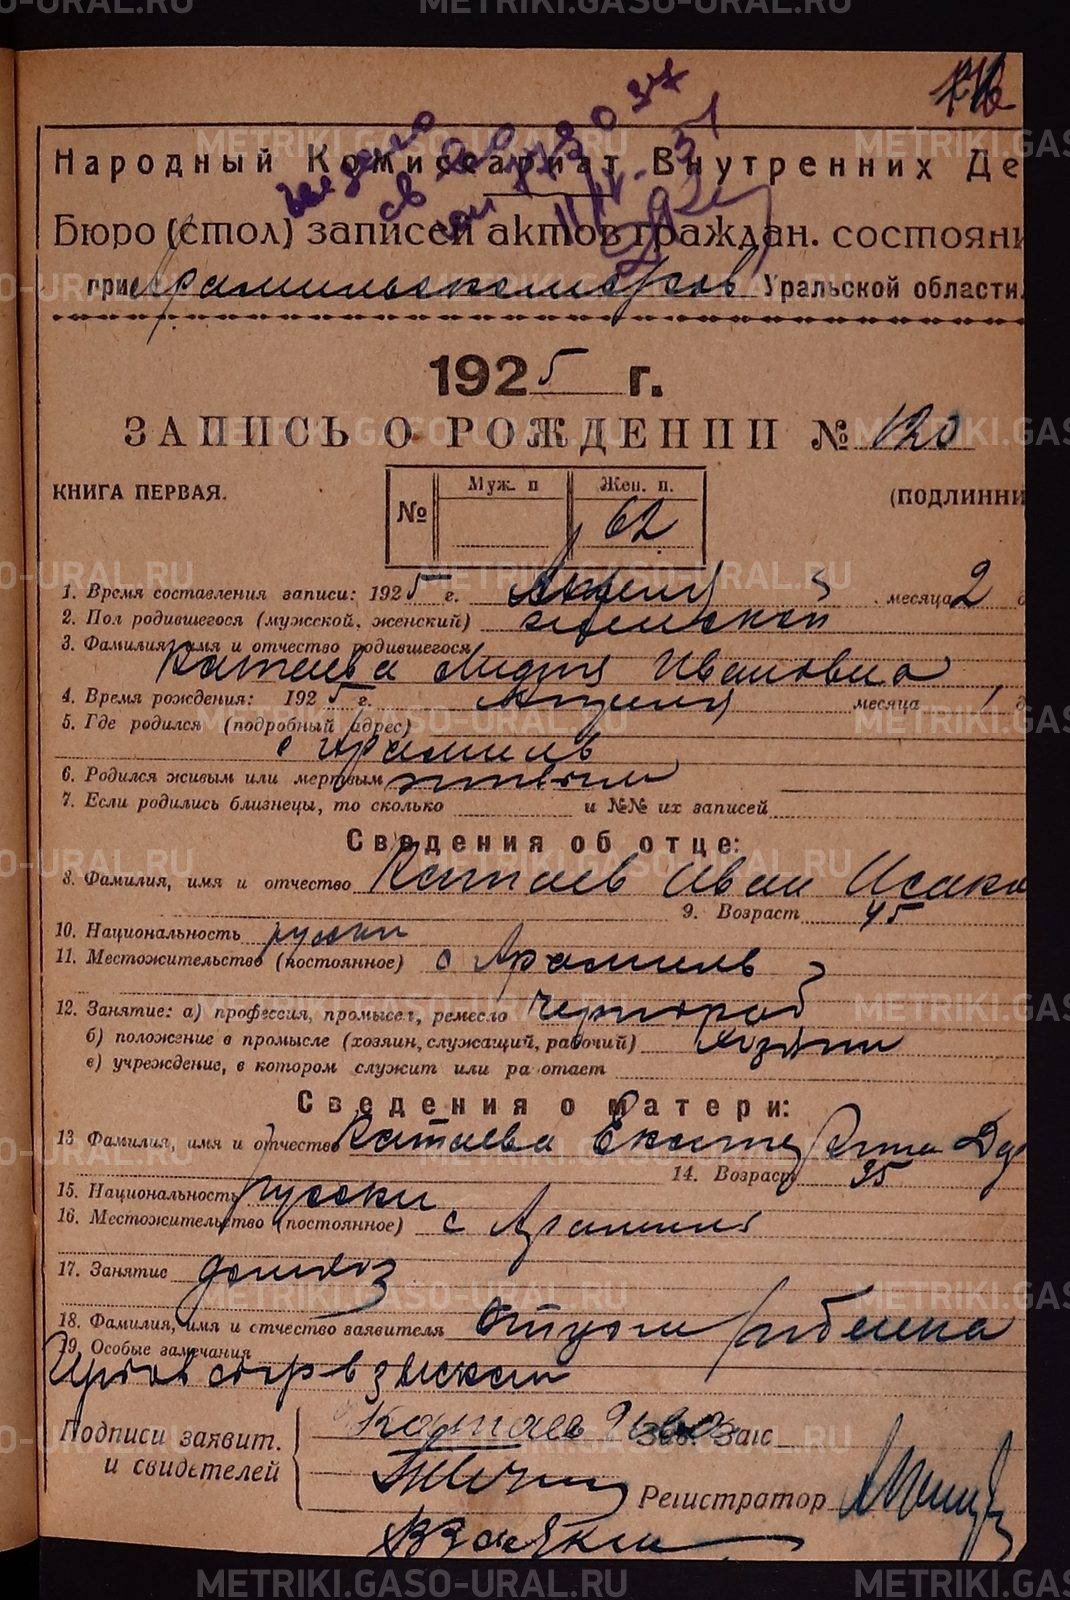 Народный Комиссариат Внутренних Де
Бюро (стол) записей актов граждан. состояни
при Уральской области.
1925 г.
ЗАПИСЬ О РОЖДЕНИИ № 120
КНИГА ПЕРВАЯ.
(ПОДЛИННИ
№ Муж. п Жен. п.
62
1. Время составления записи: 1925 г. Апреля месяца 2 д
2. Пол родившегося (мужской, женский) женской
3. Фамилия, имя и отчество родившегося
Катаева Лидия Ивановна
4. Время рождения: 1925 г. Апреля месяца 1 д
5. Где родился (подробный адрес)
с Арамиль
6. Родился живым или мертвым живым
7. Если родились близнецы, то сколько и №№ их записей
Сведения об отце:
8. Фамилия, имя и отчество Катаев Иван Исако
9. Возраст 45
10. Национальность руски
11. Местожительство (постоянное) с Арамиль
12. Занятие: а) профессия, промысел, ремесло
б) положение в промысле (хозяин, служащий, рабочий) хозяин
в) учреждение, в котором служит или ра отает
Сведения о матери:
13 Фамилия, имя и отчество Катаева
14. Возраст 35
15. Национальность русски
16. Местожительство (постоянное) с Арамиль
17. Занятие домхоз
18. Фамилия, имя и отчество заявителя Отцом ребенка
19. Особые замечания
Подписи заявит.
и свидетелей
Катаев
Зав. Загс
Регистратор
METRIKI.GASO-URAL.RU